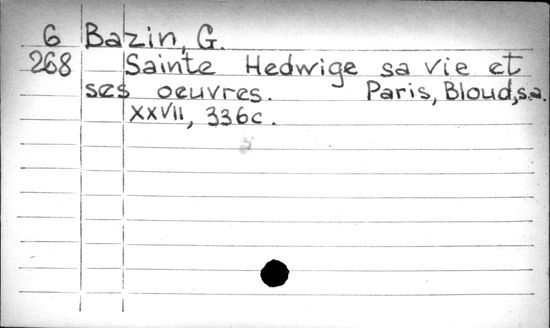 6 Bazin, G.
268 Sainte Hedwige sa vie et
ses oeuvres. Paris, Bloud, s.a.
XXVII, 336c.